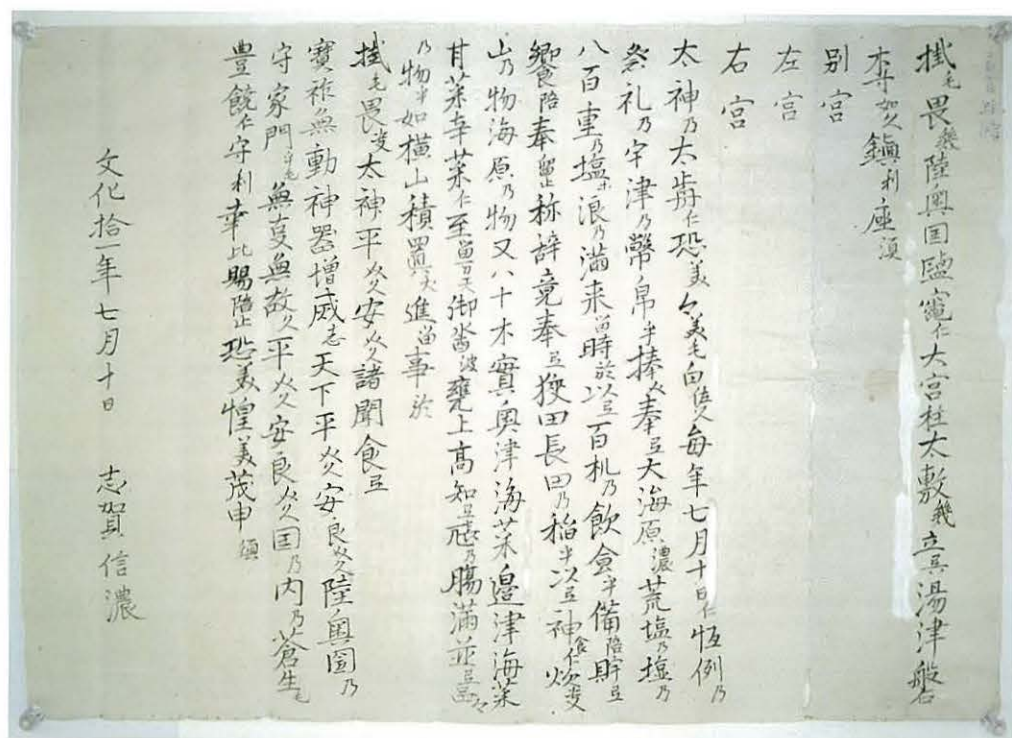 掛毛畏幾陸奥国鹽竈仁大宮柱太敷幾立弖湯津磐石
本寸如久鎮利座須
別宮
左宮
右宮
太神乃太前仁恐美々美毛白佐久每年七月十日仁恒例乃
祭礼乃宇津乃幣帛乎捧久奉弖大海原濃荒塩乃塩乃
八百重乃塩浪乃満来留時於以弖百机乃飲食乎備
饗陪奉留止称辞竟奉弖狭田長田乃稲乎以弖神食仁炊
山乃物海原乃物又八十木實奥津海菜邊津海菜
甘菜辛菜仁至留万天御酒波甕上高知弖甕乃腸満並弖
乃物乎如横山積置天進留事於
掛毛畏支太神平久安久諸聞食弖
寳祚無動神器増威志天下平久安良久陸奥国乃
守家門乎毛無憂無故久平久安良久国乃内乃蒼生毛
豊饒仁守利幸比賜陪止恐美惶美茂申須
文化拾一年七月十日 志賀信濃